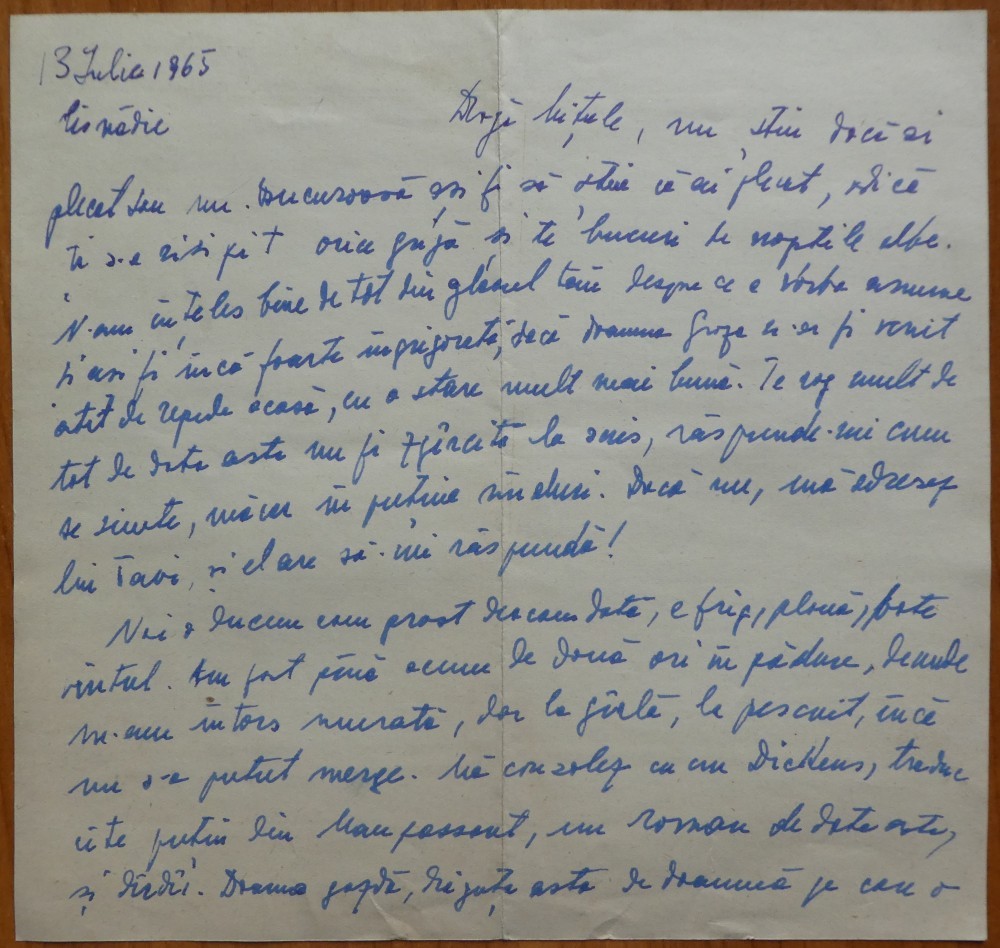 13 Iulie 1965
Cisnădie
Dragă Mițule, nu știu dacă ai
plecat sau nu. Bucuroasă aș fi să știu că ai plecat, adică
ți s-a risipit orice grijă și te bucuri de nopțile albe.
N-am înțeles bine de tot din glasul tău despre ce e vorba anume
și aș fi încă foarte îngrijorată, dacă doamna Groza n-ar fi venit
atît de repede acasă, cu o stare mult mai bună. Te rog mult de
tot de data asta nu fi zgîrcită la scris, răspunde-mi cum
se simte, măcar în puține rînduri. Dacă nu, mă adresez
lui Tavi, și el are să-mi răspundă!
Noi o ducem cam prost deocamdată, e frig, plouă, bate
vîntul. Am fost pînă acum de două ori în pădure, de unde
m-am întors murată, dar la gîrlă, la pescuit, încă
nu s-a putut merge. Mă consolez cu un Dickens, traduc
cîte puțin din Maupassant, un roman de data asta,
și dîrdîi. Doamna gazdă, drăguța asta de doamnă pe care o